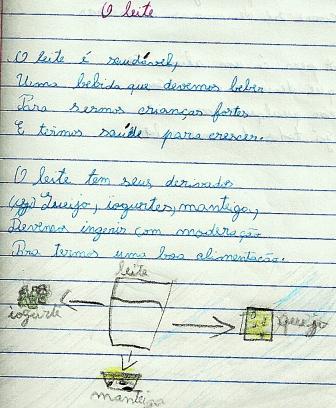 O leite
O leite é saudável,
Uma bebida que devemos beber
Para sermos crianças fortes
E termos saúde para crescer.
O leite tem seus derivados
Queijo, iogurtes, manteiga,
Devemos ingerir com moderação
Para termos uma boa alimentação.
leite
iogurte
queijo
manteiga